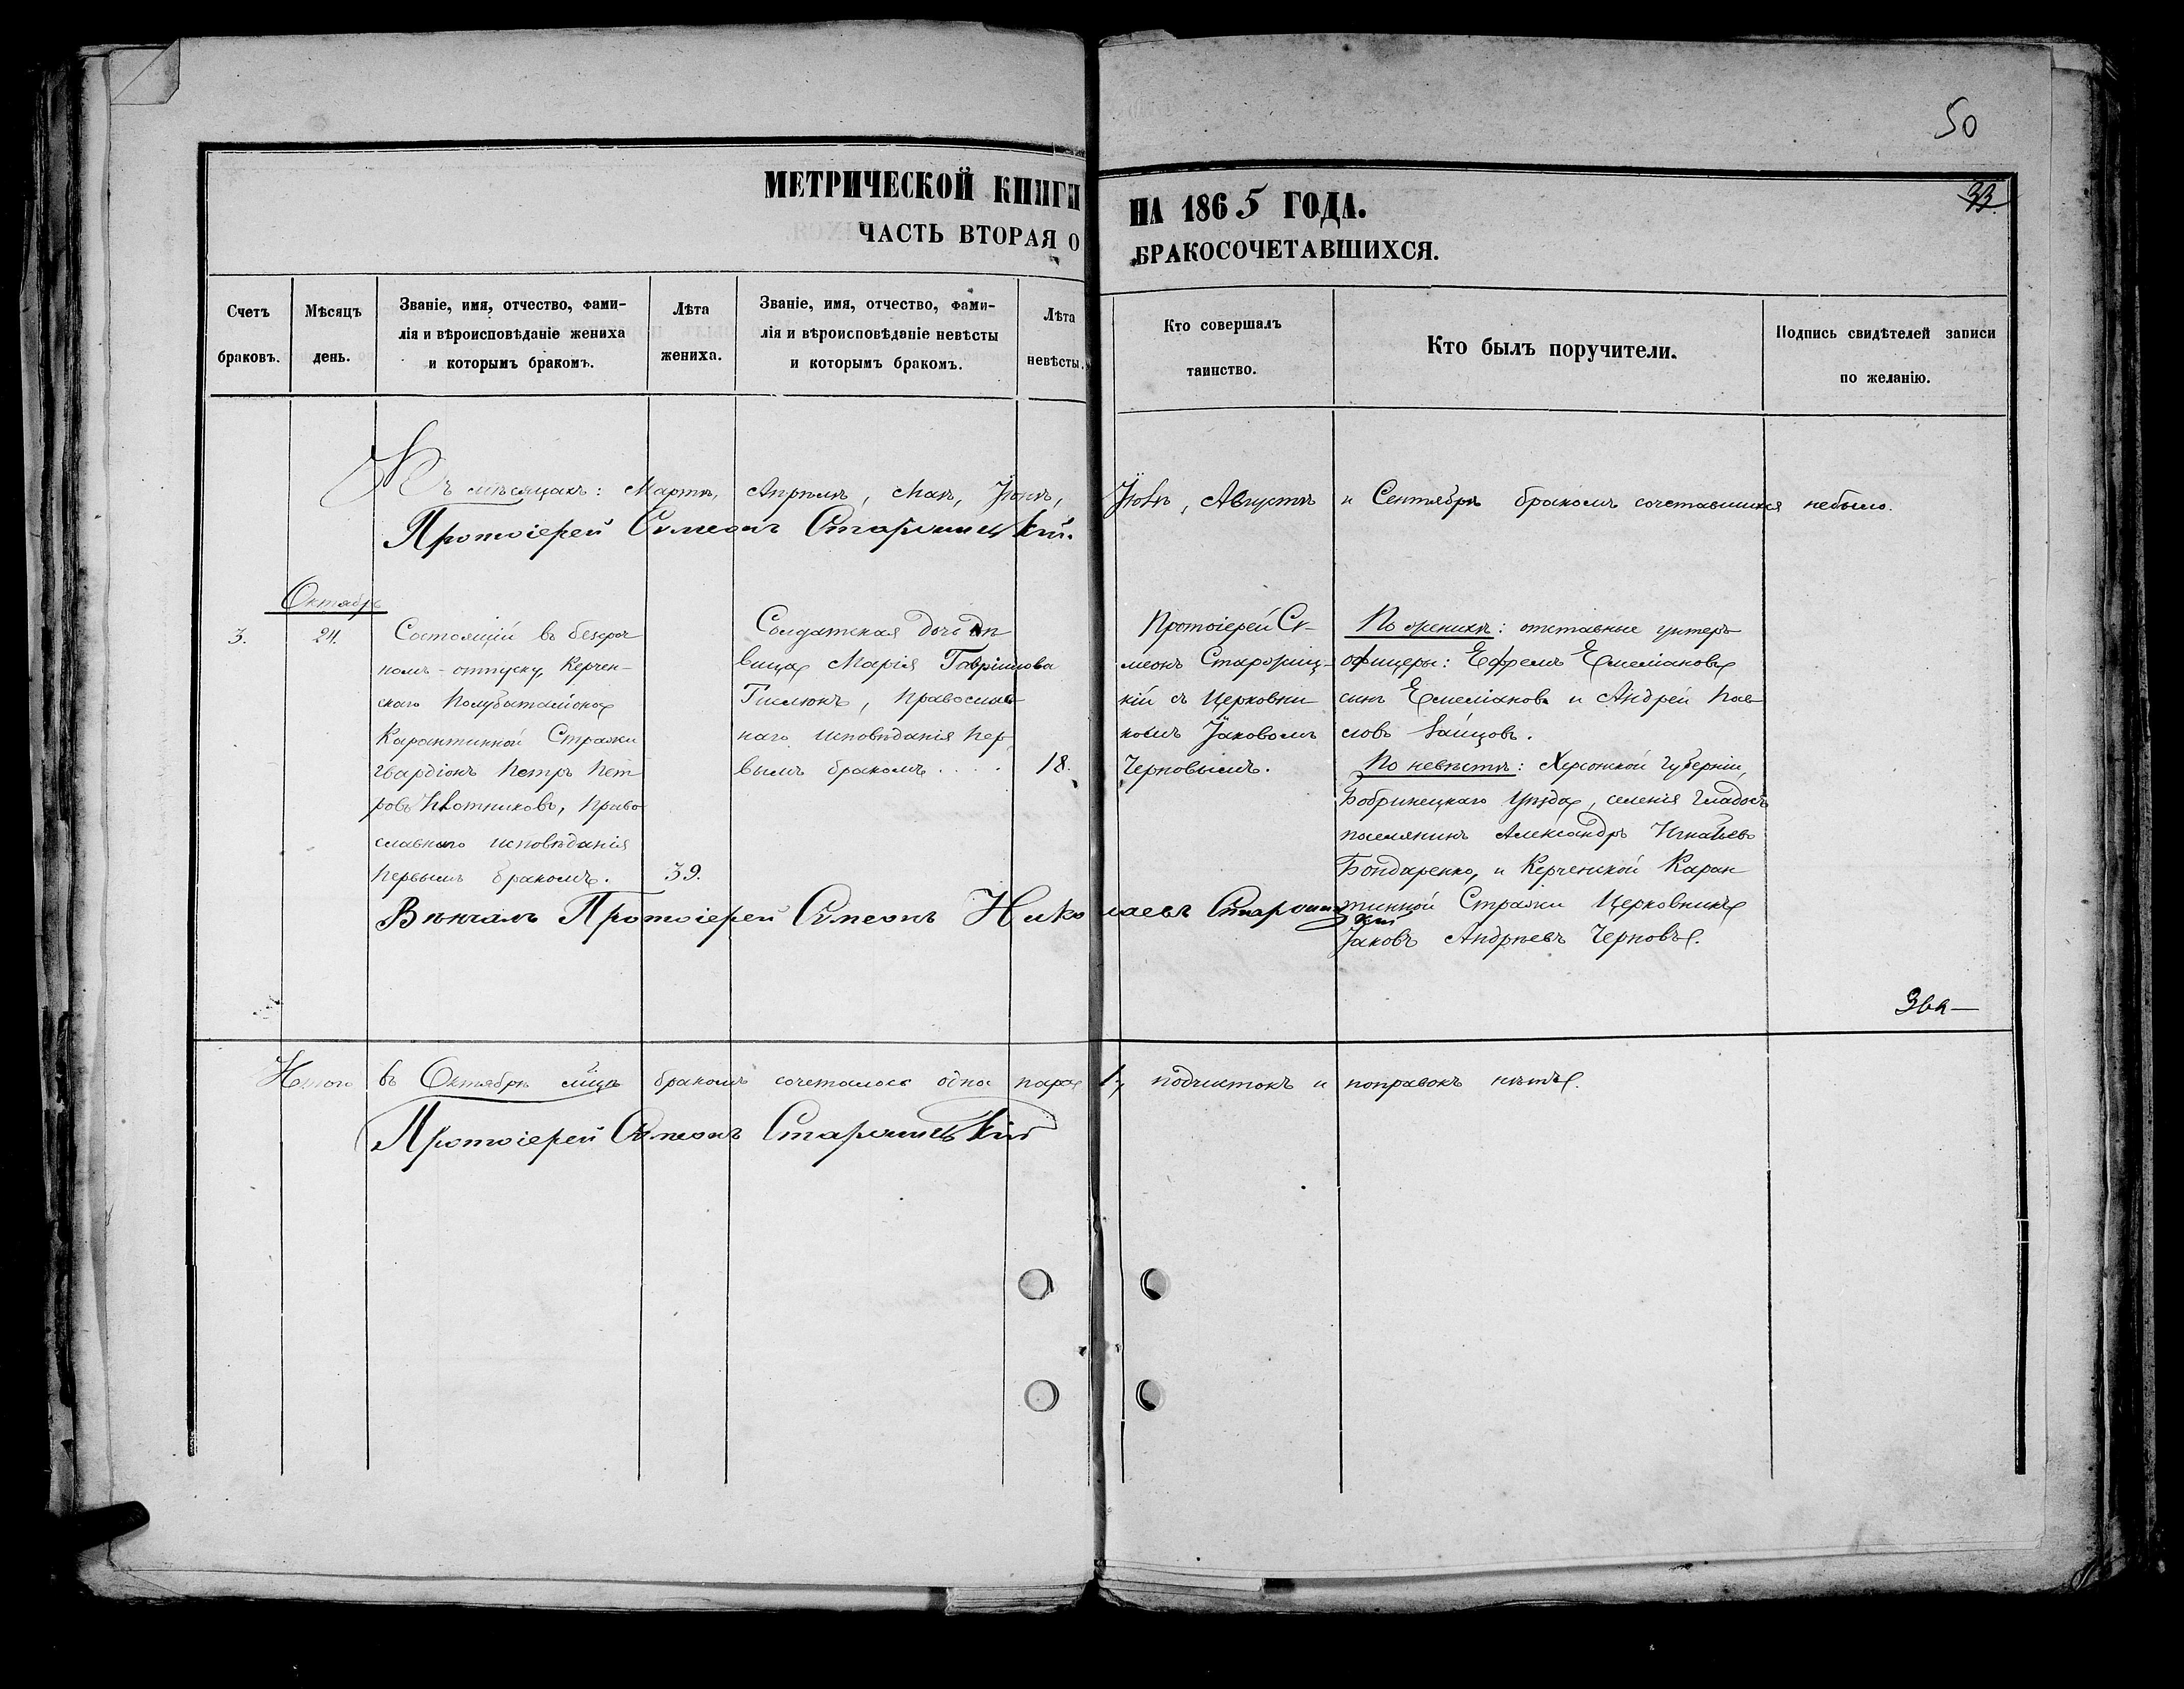 50
33.
МЕТРИЧЕСКОЙ КНИГИ НА 1865 ГОДА.
ЧАСТЬ ВТОРАЯ О БРАКОСОЧЕТАВШИХСЯ.
Счетъ браковъ.
Мѣсяцъ день.
Званіе, имя, отчество, фами-
лія и вѣроисповѣданіе жениха
и которымъ бракомъ.
Лѣта жениха.
Званіе, имя, отчество, фами-
лія и вѣроисповѣданіе невѣсты
и которымъ бракомъ.
Лѣта невѣсты.
Кто совершалъ
таинство.
Кто былъ поручители.
Подпись свидѣтелей записи
по желанію.
Въ мѣсяцахъ: Мартѣ, Апрѣлѣ, Маѣ, Іюнѣ, Іюлѣ, Августѣ и Сентябрѣ бракомъ сочетавшихся небыло.
Протоіерей Сѵмеонъ Старожицкій.
Октябрь
3.
24.
Состоящій въ безсроч
номъ-отпуску, Керчен-
скаго Полубаталіона
Карантинной Стражи
гвардіонъ Петръ Пет
ровъ Плотниковъ, право
славнаго исповѣданія
первымъ бракомъ.
39.
Солдатская дочь дѣ
вица Марія Гавріилова
Гислюкъ, православ
наго исповѣданія пер
вымъ бракомъ....
18.
Протоіерей Сѵ-
меонъ Старожиц-
кій съ Церковни
комъ Іаковомъ
Черновымъ.
По женихѣ: отставные унтеръ
офицеры: Ефремъ Емеліановъ
сынъ Емеліановъ и Андрей Пав
ловъ Зайцовъ.
По невѣстѣ: Херсонской губерніи,
Бобринецкаго уѣзда, селенія Гладосъ
поселянинъ Александръ Игнатьевъ
Бондаренко, и Керченской Каран
тинной Стражи Церковникъ
Іаковъ Андреевъ Черновъ.
Вѣнчалъ Протоіерей Сѵмеонъ Николаевъ Старожицкій
Итого въ Октябрѣ мцѣ бракомъ сочеталось одна пара 1, подчистокъ и поправокъ нѣтъ.
Протоіерей Сѵмеонъ Старожицкій